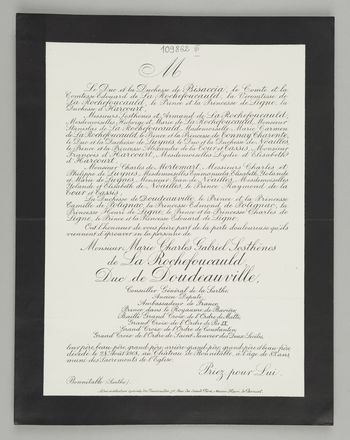 109862
M
Le Duc et la Duchesse de Bisaccia, le Comte et la
Comtesse Edouard de La Rochefoucauld, la Vicomtesse de
La Rochefoucauld, le Prince et la Princesse de Ligne, la
Duchesse d'Harcourt,
Messieurs Sosthènes et Armand de La Rochefoucauld,
Mesdemoiselles Hedwige et Marie de La Rochefoucauld, Monsieur
Stanislas de La Rochefoucauld, Mademoiselle Marie Carmen
de La Rochefoucauld, le Prince et la Princesse de Tonnay Charente,
le Duc et la Duchesse de Luynes, le Duc et la Duchesse de Noailles,
le Prince et la Princesse Alexandre de La Tour et Cassis, Monsieur
François d'Harcourt, Mesdemoiselles Lydie et Elisabeth
d'Harcourt,
Monsieur Charles de Mortemart, Messieurs Charles et
Philippe de Luynes, Mesdemoiselles Emmanuelle, Elisabeth, Yolande
et Marie de Luynes, Mesdemoiselles
Yolande et Elisabeth de Noailles, le Prince Raymond de la
Tour et Cassis,
La Duchesse de Doudeauville, le Prince et la Princesse
Camille de Polignac, la Princesse Edmond de Polignac, la
Princesse Henri de Ligne, le Prince et la Princesse Charles de
Ligne, le Prince et la Princesse Edouard de Ligne,
Ont l'honneur de vous faire part de la perte douloureuse qu'ils
viennent d'éprouver en la personne de
Monsieur Marie Charles Gabriel Sosthènes
de La Rochefoucauld,
Duc de Doudeauville,
Conseiller Général de la Sarthe,
Ancien Député,
Ambassadeur de France,
Prince dans le Royaume de Bavière
Bailli Grand Croix de l'Ordre de Malte,
Grand Croix de l'Ordre de Pie IX,
Grand Croix de l'Ordre de
Grand Croix de l'Ordre de Saint Janvier des Deux Siciles,
leur père, beau-père, grand-père, arrière-grand-père, grand-père et beau-frère
décédé le 28 Août 1908, au Château de Bonnétable, à l'âge de 83 ans
muni des Sacrements de l'Eglise.
Priez pour Lui.
Bonnétable (Sarthe)